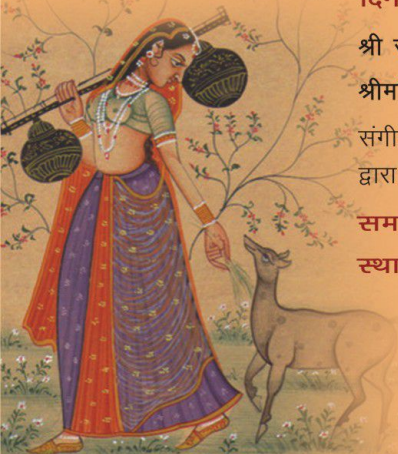 दिन
श्री
श्रीम
संगी
द्वारा
सम
स्था